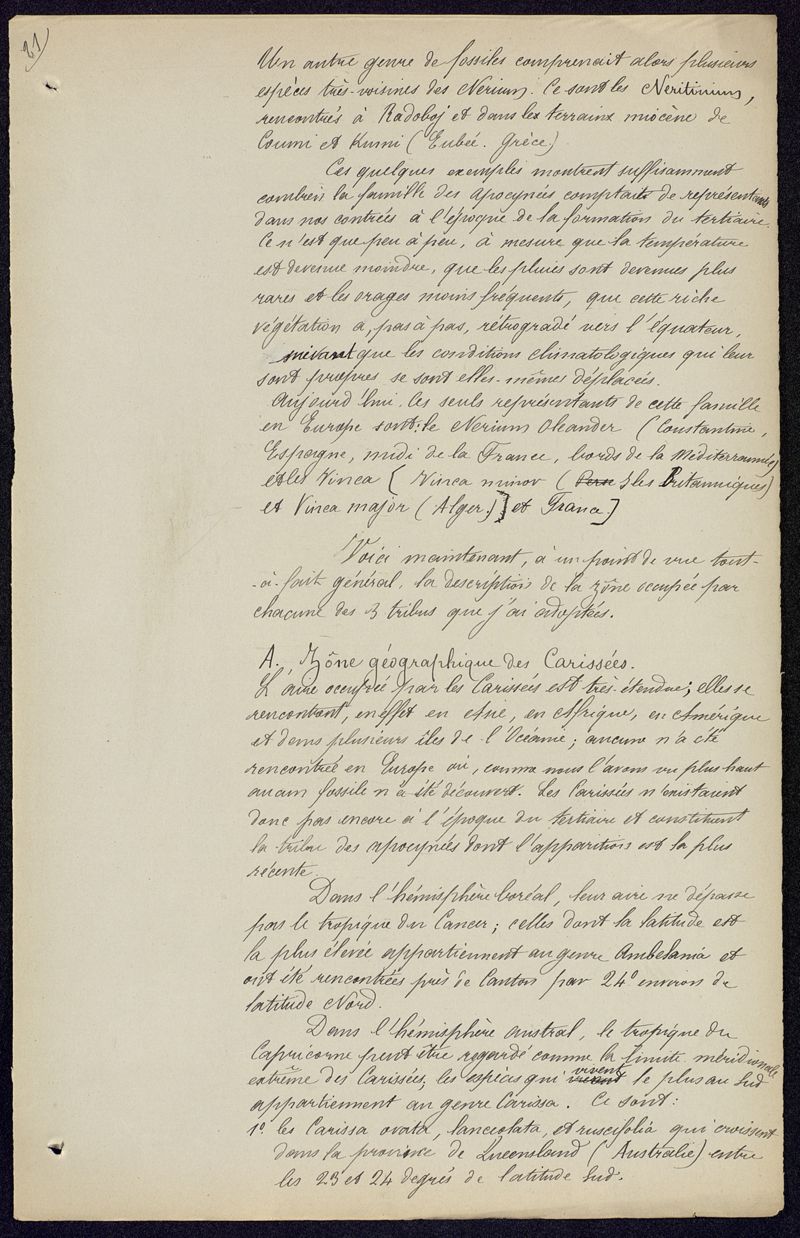 21
Un autre genre de fossiles comprenait alors plusieurs
espèces très-voisines des Nerium. Ce sont les Neritinium,
rencontrés à Radoboj et dans les terrains miocène de
Coumi et Kumi (Eubée. Grèce)
Ces quelques exemples montrent suffisamment
combien la famille des Apocynées comptait de représentants
dans nos contrées à l'époque de la formation du tertiaire.
Ce n'est que peu à peu, à mesure que la température
est devenue moindre, que les pluies sont devenues plus
rares et les orages moins fréquents, que cette riche
végétation a, pas à pas, rétrogradé vers l'équateur,
suivant que les conditions climatologiques qui leur
sont propres se sont elles-mêmes déplacées.
Aujourd'hui, les seuls représentants de cette famille
en Europe sont: le Nerium Oleander (Constantine,
Espagne, midi de la France, bords de la Méditerrannée)
et les Vinca [Vinca minor ( Iles Britanniques)
et Vinca major (Alger.)] et France.]
Voici maintenant, à un point de vue tout-
-à-fait général, la description de la zône occupée par
chacune des 3 tribus que j'ai adoptées.
A. Zône géographique des Carissées.
L'aire occupée par les Carissées est très-étendue; elles se
rencontrent, en effet en Asie, en Afrique, en Amérique
et dans plusieurs îles de l'Océanie; aucune n'a été
rencontrée en Europe où, comme nous l'avons vu plus haut
aucun fossile n'a été découvert. Les Carissées n'existaient
donc pas encore à l'époque du tertiaire et constituent
la tribu des apocynées dont l'apparition est la plus
récente.
Dans l'hémisphère boréal, leur aire ne dépasse
pas le tropique du Cancer; celles dont la latitude est
la plus élevée appartiennent au genre Ambelania et
ont été rencontrées près de Canton par 24° environ de
latitude Nord.
Dans l'hémisphère austral, le tropique du
Capricorne peut être regardé comme la limite méridionale
extrême des Carissées; les espèces qui vivent le plus au Sud
appartiennent au genre Carissa. Ce sont:
1° les Carissa ovata, lanceolata, et ruscifolia qui croissent
dans la province de Queensland (Australie) entre
les 23 et 24 degrés de latitude Sud.